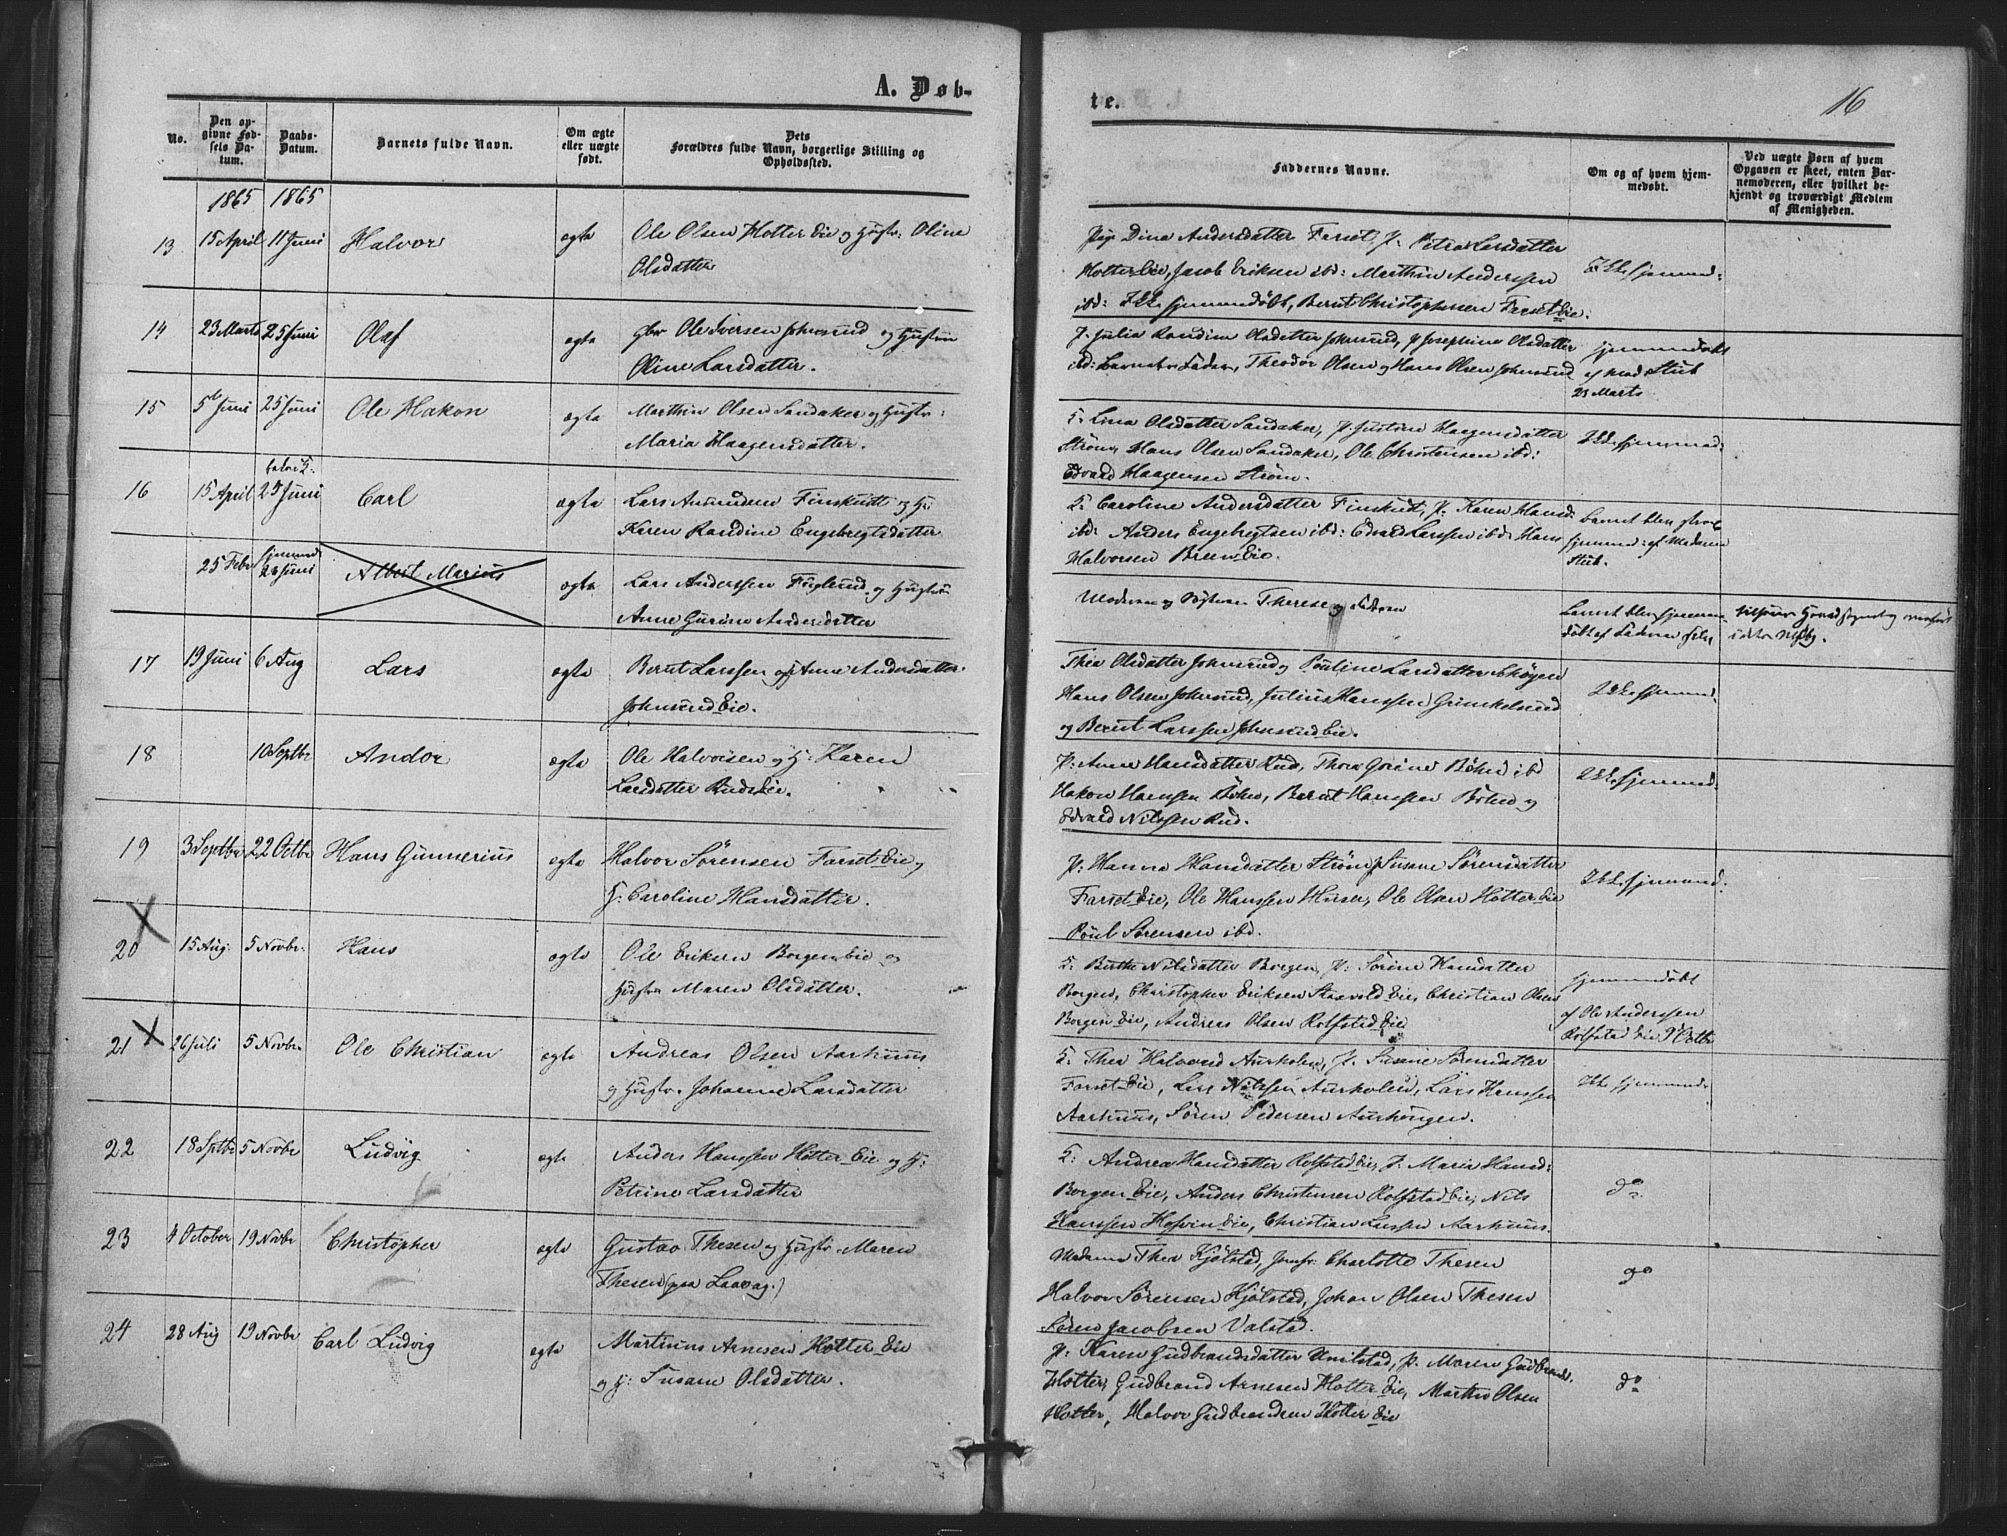 A. Døb-
te.
16
No.
Den op-
givne Fød-
sels Da-
tum.
Daabs-
Datum.
Barnets fulde Navn.
Om ægte
eller uægte
født.
Dets
Forældres fulde Navn, borgerlige Stilling og
Opholdssted.
Faddernes Navne.
Om og af hvem hjem-
medøbt.
Ved uægte Børn af hvem
Opgaven er skeet, enten Bar-
nemoderen, eller hvilket be-
kjendt og troværdigt Medlem
af Menigheden.
1865 1865
13 15 April 11 Juni Halvor ægte Ole Olsen Hotter Eie og Hustr: Oline
Olsdatter
Pige Dina Andersdatter Farset, P. Petra Larsdatter
Hotter Eie, Jacob Eriksen ibd: Marthin Anderssen
ibd: Ikke hjemmedøbt, Bernt Christophersen Farset Eie.
Ikke hjemmed:
14 23 Marts 25 Juni Olaf ægte Gbr Ole Iversen Johnsrud og Hustru
Oline Larsdatter.
P. Julia Randine Olsdatter Johnsrud, P Josephine Olsdatter
ibd: Barnets Fader, Theodor Olsen og Hans Olsen Johnsrud
hjemmedøbt
af Mad Stub
23 Marts
15 5te Juni 25 Juni Ole Hakon ægte Marthin Olsen Sandaker og Hustr:
Maria Haagensdatter.
K. Lina Olsdatter Sandaker, P. Justine Haagensdatter
Strøm, Hans Olsen Sandaker, Ole Christensen ibd:
Edvard Haagensen Strøm.
Ikke hjemmed:
16 15 April 25 Juni Carl ægte Lars Amundsen Finskudt og H:
Karen Randine Engebregtsdatter
K: Caroline Andersdatter Finskudt, P. Karen Hansd:
ibd: Anders Engebregtsen ibd: Edvard Larssen ibd: Hans
Halvorsen Breen Eie.
Barnet blev strax
hjemmed: af Madame
Stub.
25 Febr hjemmed
23 Juni Albert Marius ægte Lars Anderssen Fuglerud og Hustru
Anne Gurine Andersdatter
Moderen og Therese og Faderen
Barnet blev hjemme
døbt af Faderen selv
17 19 Juni 6 Aug Lars ægte Bernt Larssen og Anne Andersdatter
Johnsrud Eie.
Thea Olsdatter Johnsrud og Pouline Larsdatter Skøyen
Hans Olsen Johnsrud, Julius Hanssen Grinkelsrud
og Bernt Larssen Johnsrud Eie.
Ikke hjemmed.
18 10 Septbr Andor ægte Ole Halvorsen og H: Karen
Larsdatter Ruds Eie.
P: Anne Hansdatter Rud, Thora Gorine Bøhn ibd
Hakon Hanssen Bøhn, Bernt Hanssen Bøhn og
Edvald Nilssen Rud.
Ikke hjemmed.
19 3 Septbr 22 Octbr Hans Gunnerius ægte Halvor Sørensen Farset Eie og
H: Caroline Hansdatter.
P: Hanna Hansdatter Strøm, P Susane Sørensdatter
Farset Eie, Ole Hanssen Huser, Ole Olsen Hotter Eie
Poul Sørensen ibd.
Ikke hjemmed.
20 15 Aug. 5 Novbr. Hans ægte Ole Eriksen Borgen Eie og
Hustr. Maren Olsdatter.
K: Berthe Nilsdatter Borgen, P: Sørine Hansdatter
Borgen, Christopher Eriksen Eie, Christian Olsen
Borgen Eie, Andreas Olsen Rolfstad Eie
hjemmedøbt
af Ole Anderssen
Rolfstad Eie 9 Octbr
21 26 Juli 5 Novbr. Ole Christian ægte Andreas Olsen Aarhuus
og Hustr. Johanne Larsdatter
K: Thea Halvorsd Aurholen, P. Susane Sørensdatter
Farset Eie, Lars Nilssen Aurholen, Lars Hanssen
Aarhuus, Søren Pedersen Aurhougen.
Ikke hjemmed.
22 18 Septbr 5 Novbr Ludvig ægte Anders Hanssen Hotter Eie og H:
Petrine Larsdatter
K: Andrea Hansdatter Rolfstad Eie, P. Maria Hansd:
Borgen Eie, Anders Christensen Rolfstad Eie, Nils
Hanssen Hofvin Eie, Christian Larssen Aarhuus.
do
23 4 October 19 Novbr Christopher ægte Gustav Thesen og Hustr. Maren
Thesen (paa Laavag.)
Madame Thea Kjølstad, Jomfr: Charlotte Thesen
Halvor Sørensen Kjølstad, Johan Olsen Thesen
Søren Jacobsen Valstad.
do
24 28 Aug 19 Novbr Carl Ludvig ægte Martinus Arnesen Hotter Eie
og H: Susane Olsdatter.
P: Karen Gudbrandsdatter Unilstad, P. Maren Gudbrands.
Hotter, Gudbrand Arnesen Hotter Eie, Martin Olsen
Hotter, Halvor Gudbrandsen Hotter Eie
do